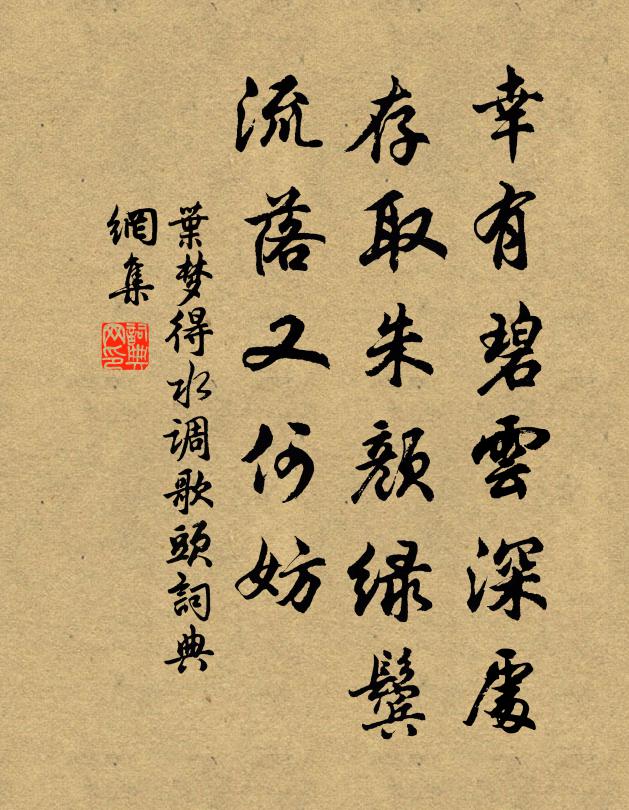 幸有碧雲深處
存取朱顏绿鬓
流落又何妨
葉梦得水调歌頭詞典
網集
詞典
网印